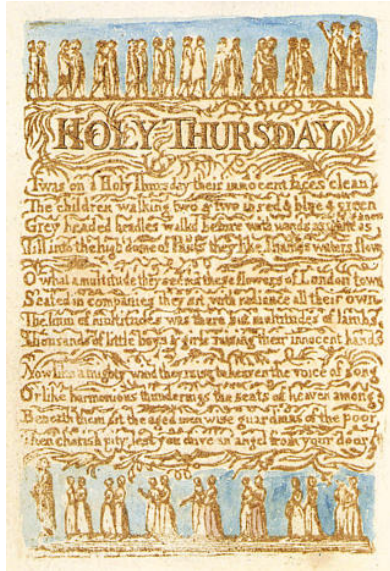 HOLY THURSDAY
Twas on a Holy Thursday their innocent faces clean
The children walking two & two in red & blue & green
Grey headed beadles walkd before with wands as white as
Till into the high dome of Pauls they like Thames waters flow
O what a multitude they seemd these flowers of London town
Seated in companies they sit with radiance all their own
The hum of multitudes was there but multitudes of lambs
Thousands of little boys & girls raising their innocent hands
Now like a mighty wind they raise to heaven the voice of song
Or like harmonious thunderings the seats of heaven among
Beneath them sit the aged men wise guardians of the poor
Then cherish pity, lest you drive an angel from your door